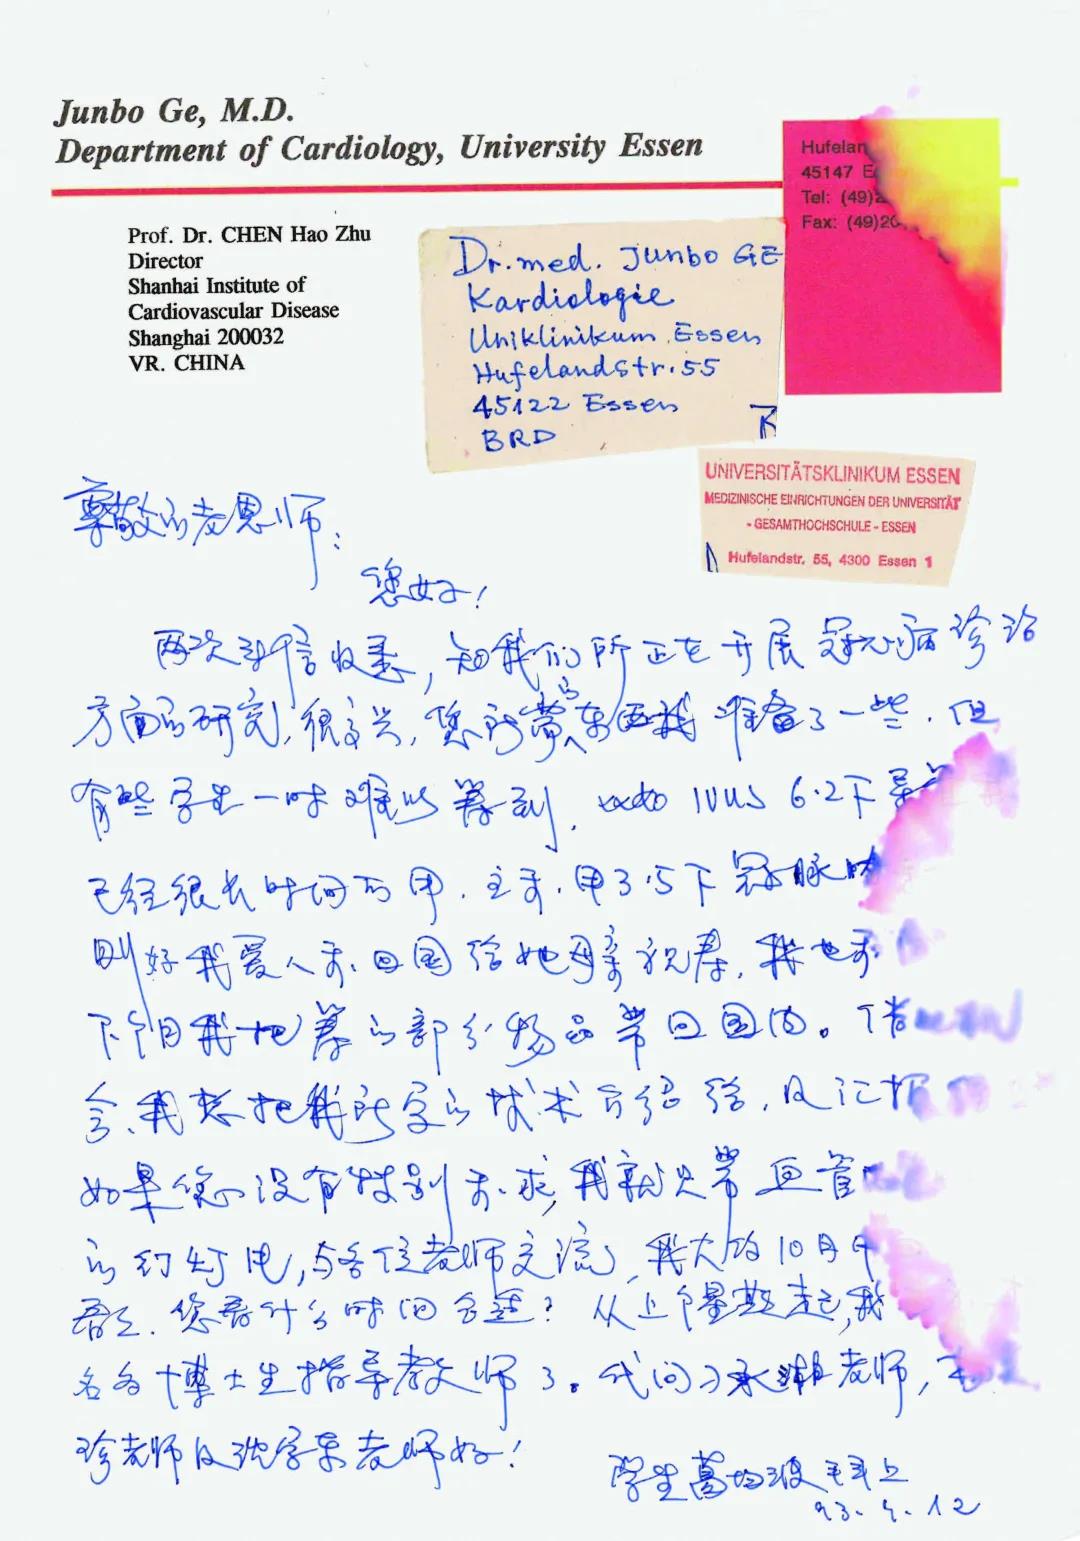 Junbo Ge, M.D.
Department of Cardiology, University Essen
Hufelan
45147 E
Tel: (49)2
Fax: (49)20
Prof. Dr. CHEN Hao Zhu
Director
Shanhai Institute of
Cardiovascular Disease
Shanghai 200032
VR. CHINA
Dr.med. Junbo GE
Kardiologie
Uniklinikum Essen
Hufelandstr.55
45122 Essen
BRD
UNIVERSITÄTSKLINIKUM ESSEN
MEDIZINISCHE EINRICHTUNGEN DER UNIVERSITÄT
- GESAMTHOCHSCHULE - ESSEN
Hufelandstr. 55, 4300 Essen 1
尊敬的老恩师:
您好!
两次来信收悉,知我们所正在开展冠心病诊治
方面的研究,很高兴,您所需的东西我准备了一些.但
有些学生一时难以筹到. IVUS 6.2F导
已经很长时间不用.主要.用3.5F冠脉
刚好我爱人要回国给她母亲祝寿,我也
下个月我把筹的部分物品带回国内。
会,我想把我所学的技术介绍给,及汇报
如果您没有特别要求,我就只带血管
的幻灯片,与各位老师交流,我大约10月
看看.您看什么时间合适?从上个星期起,我
名博士生指导教师了。代问 老师,
珍老师及沈学东老师好!
学生葛均波 上
93.9.12